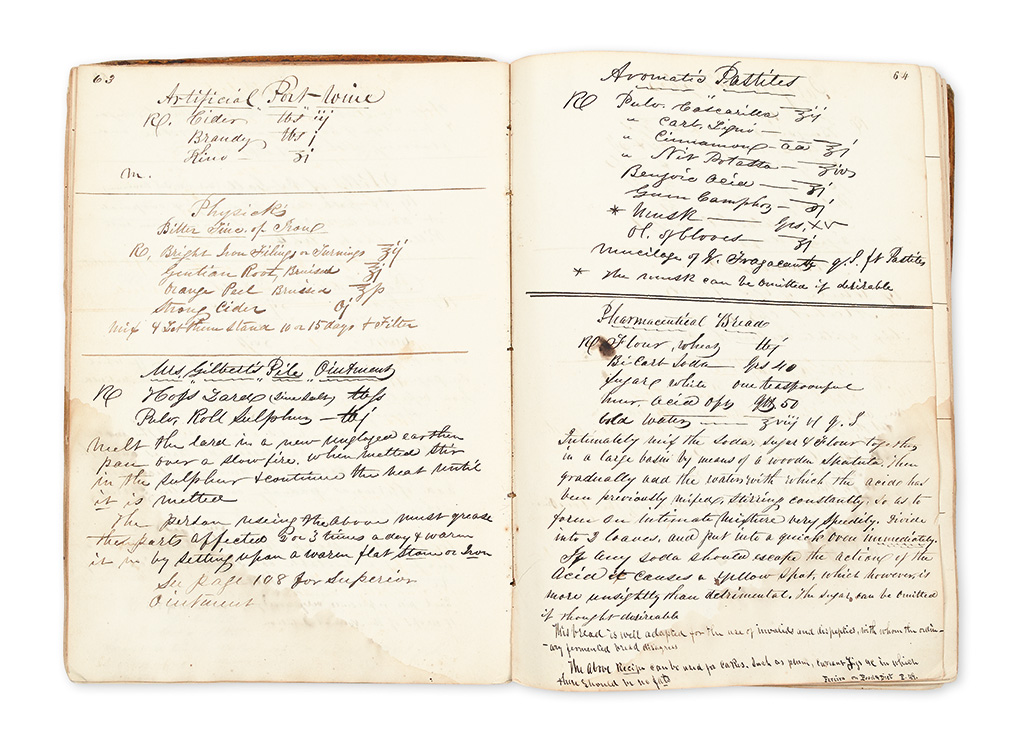 63
Artificial Port-wine
Rx. Cider lbs iij
Brandy lbs j
Kino — ʒj
m.
Physick's
Bitter Tinc. of Iron
Rx, Bright Iron Filings or Turnings ʒij
Gentian Root, Bruised ʒj
Orange Peel Bruised ʒſs
Strong Cider Oj
Mix & Let them stand 10 or 15 days & Filter
Mrs, Gilbert's Pile Ointment
Rx Hogs Lard (sine Salt) lbſs
Pulv, Roll Sulphur — lbj
melt the lard in a new unglazed earthen
pan over a slow fire. when melted stir
in the sulphur & continue the heat until
it is melted
The person useing the above must grease
the parts affected 2 or 3 times a day & warm
it in by setting upon a warm flat Stone or Iron
See page 108 for Superior
Ointment
64
Aromatic Pastiles
Rx Pulv. Cascarilla ʒij
" Carb. Ligni —
" Cinnamon — aa ʒj
" Nit Potassa —
Benzoic Acid — ʒj
Gum Camphor — ʒj
* Musk — grs, xv
Ol. of Cloves — ʒj
Mucilage of G. Tragacanth q.S. ft Pastiles
* The musk can be omitted if desirable
Pharmaceutical Bread
Rx Flour, wheat lbj
Bi Carb Soda grs 40
Sugar white one teaspoonful
Mur. Acid 50
Cold water — ʒviij vl q. S
Intimately mix the Soda, Sugar & Flour together
in a large basin by means of a wooden Spatula. Then
gradually add the water with which the acid has
been previously mixed, stirring constantly, so as to
form an intimate mixture very speedily. Divide
into 2 loaves, and put into a quick oven immediately.
If any soda should escape the action of the
Acid it causes a yellow spot, which however, is
more unsightly than detrimental. The Sugar, can be omitted
if thought desireable
This bread is well adapted for the use of invalids and dispeptics, with whom the ordin-
-ary fermented bread disagrees
The above Recipe can be used for cakes. Such as plain, currant &c in which
there should be no fat
Pereira on Food & Diet P.